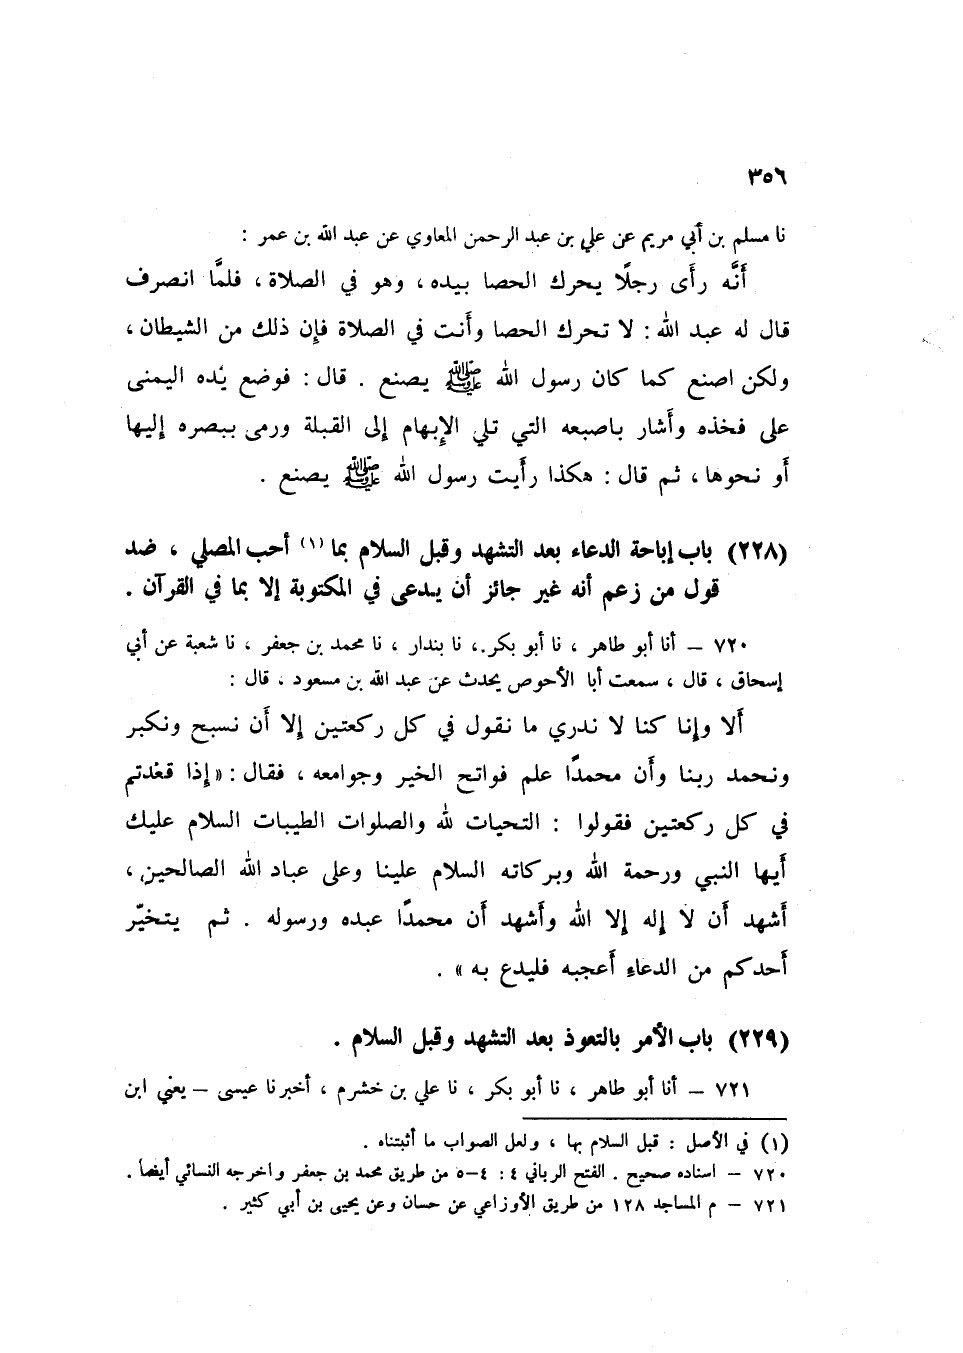 ٣٥٦
نا مسلم بن أبي مريم عن علي بن عبد الرحمن المعاوي عن عبد الله بن عمر :
أنَّه رأى رجلًا يحرك الحصا بيده ، وهو في الصلاة ، فلمَّا انصرف
قال له عبد الله : لا تحرك الحصا وأنت في الصلاة فإن ذلك من الشيطان ،
ولكن اصنع كما كان رسول الله ﷺ يصنع . قال : فوضع يده اليمنى
على فخذه وأشار باصبعه التي تلي الإبهام إلى القبلة ورمى ببصره إليها
أو نحوها ، ثم قال : هكذا رأيت رسول الله ﷺ يصنع .
(٢٢٨) باب إباحة الدعاء بعد التشهد وقبل السلام بما (١) أحب المصلي ، ضد
قول من زعم أنه غير جائز أن يدعى في المكتوبة إلا بما في القرآن .
٧٢٠ – أنا أبو طاهر ، نا أبو بكر ، نا بندار ، نا محمد بن جعفر ، نا شعبة عن أبي
إسحاق ، قال ، سمعت أبا الأحوص يحدث عن عبد الله بن مسعود ، قال :
ألا وإنا كنا لا ندري ما نقول في كل ركعتين إلا أن نسبح ونكبر
ونحمد ربنا وأن محمدًا علم فواتح الخير وجوامعه ، فقال : «إذا قعدتم
في كل ركعتين فقولوا : التحيات لله والصلوات الطيبات السلام عليك
أيها النبي ورحمة الله وبركاته السلام علينا وعلى عباد الله الصالحين ،
أشهد أن لا إله إلا الله وأشهد أن محمدًا عبده ورسوله . ثم يتخيّر
أحدكم من الدعاء أعجبه فليدع به» .
(٢٢٩) باب الأمر بالتعوذ بعد التشهد وقبل السلام .
٧٢١ – أنا أبو طاهر ، نا أبو بكر ، نا علي بن خشرم ، أخبرنا عيسى – يعني ابن
(١) في الأصل : قبل السلام بها ، ولعل الصواب ما أثبتناه .
٧٢٠ – اسناده صحيح . الفتح الرباني ٤ : ٤–٥ من طريق محمد بن جعفر واخرجه النسائي أيضاً .
٧٢١ – م المساجد ١٢٨ من طريق الأوزاعي عن حسان وعن يحيى بن أبي كثير .